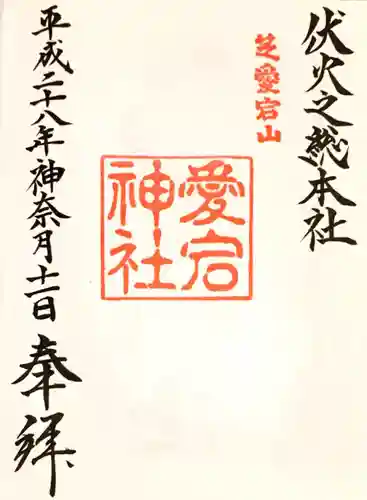 伏火之総本社
芝愛宕山
愛宕
神社
平成二十八年神奈月十一日
奉拝